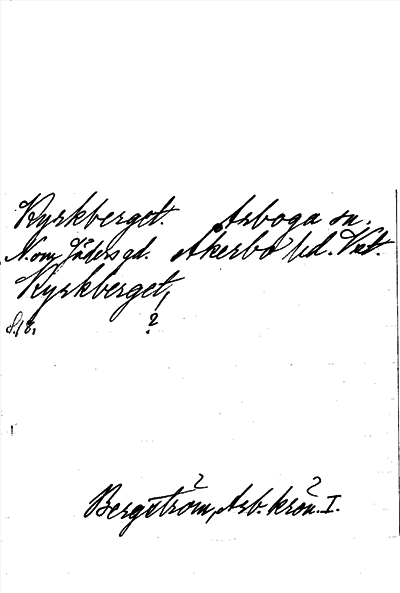 Kyrkberget. Arboga sn.
N. om Jäders gd. Åkerbo hd. Vstm.
Kyrkberget,
?
Bergström, Arb. krön. I.